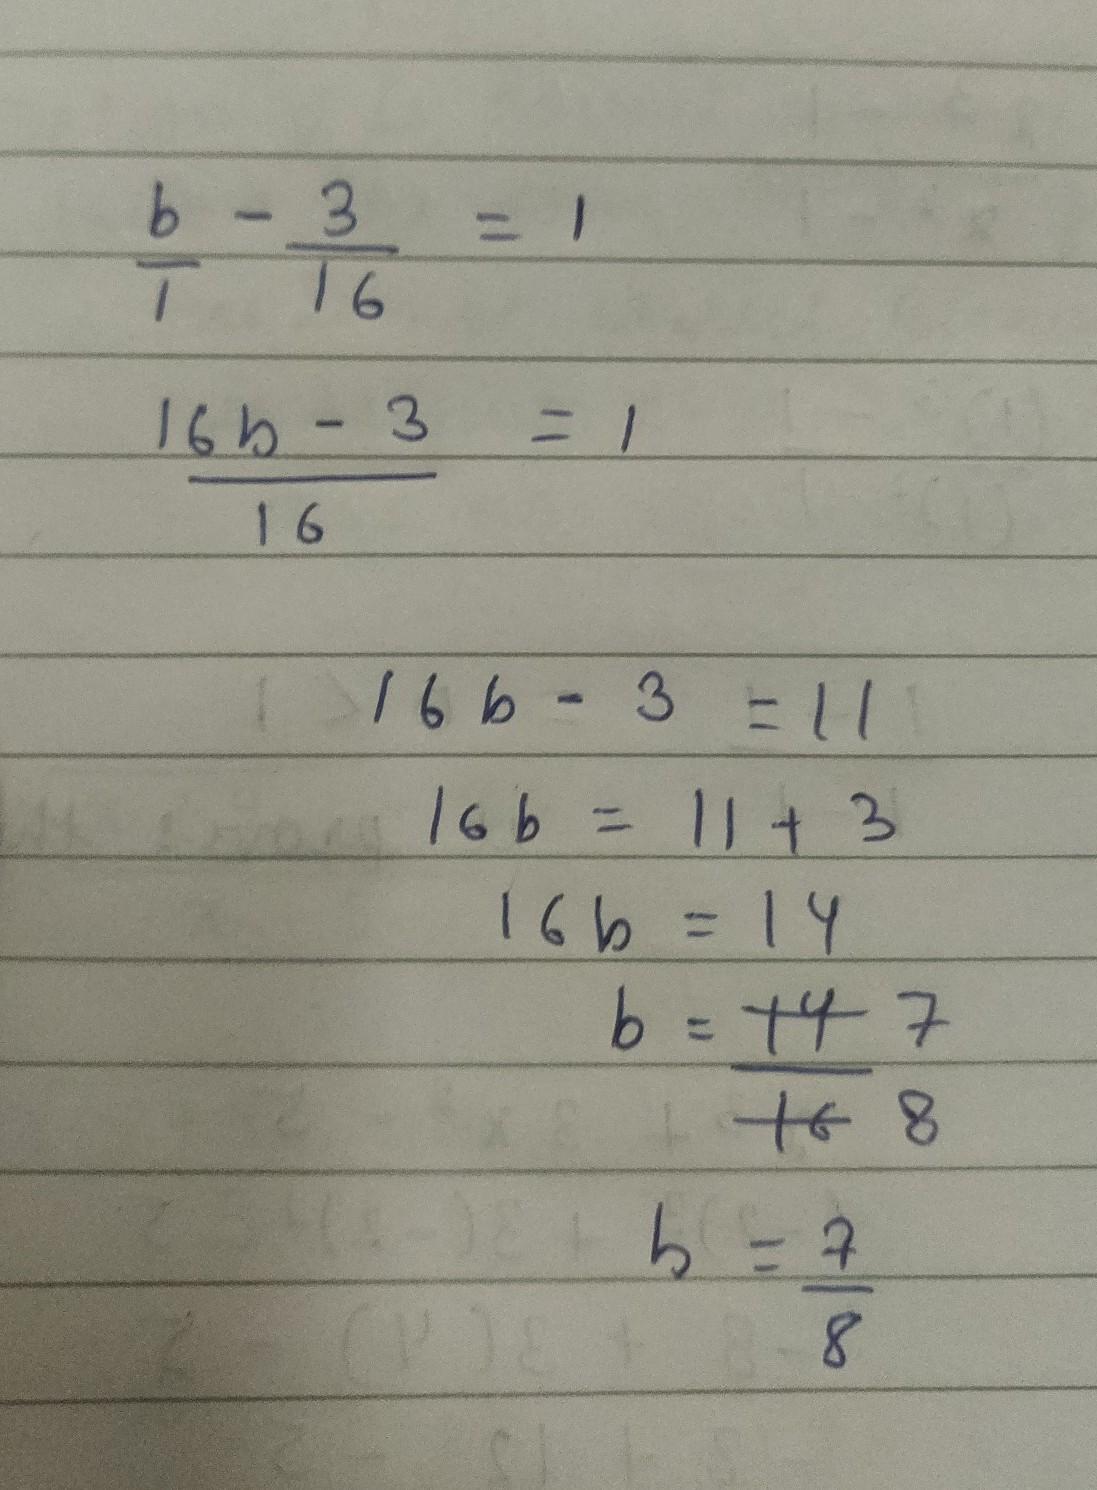 b/1 - 3/16 = 1
(16b - 3)/16 = 1
16b - 3 = 11
16b = 11 + 3
16b = 14
b = 14/16 7/8
b = 7/8